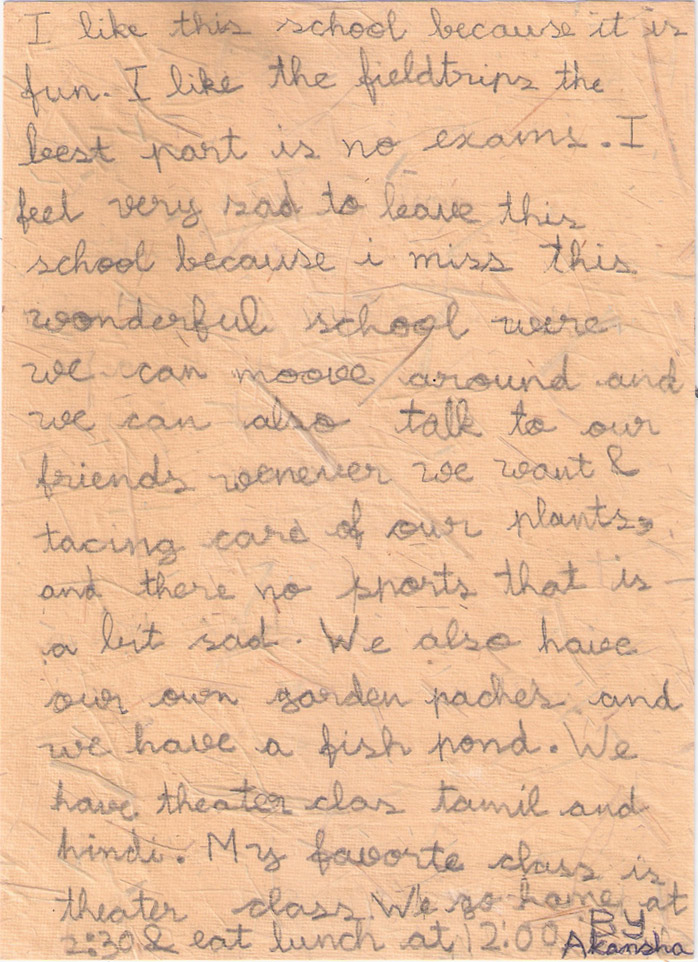 I like this school because it is
fun. I like the fieldtrips the
best part is no exams. I
feel very sad to leave this
school because i miss this
wonderful school were
we can moove around and
we can also talk to our
friends wenever we want &
tacing care of our plants,
and there no sports that is
a bit sad. We also have
our own garden paches and
we have a fish pond. We
have theater clas tamil and
hindi. My favorte class is
theater class. We go home at
2:30 & eat lunch at 12:00. By
Akansha